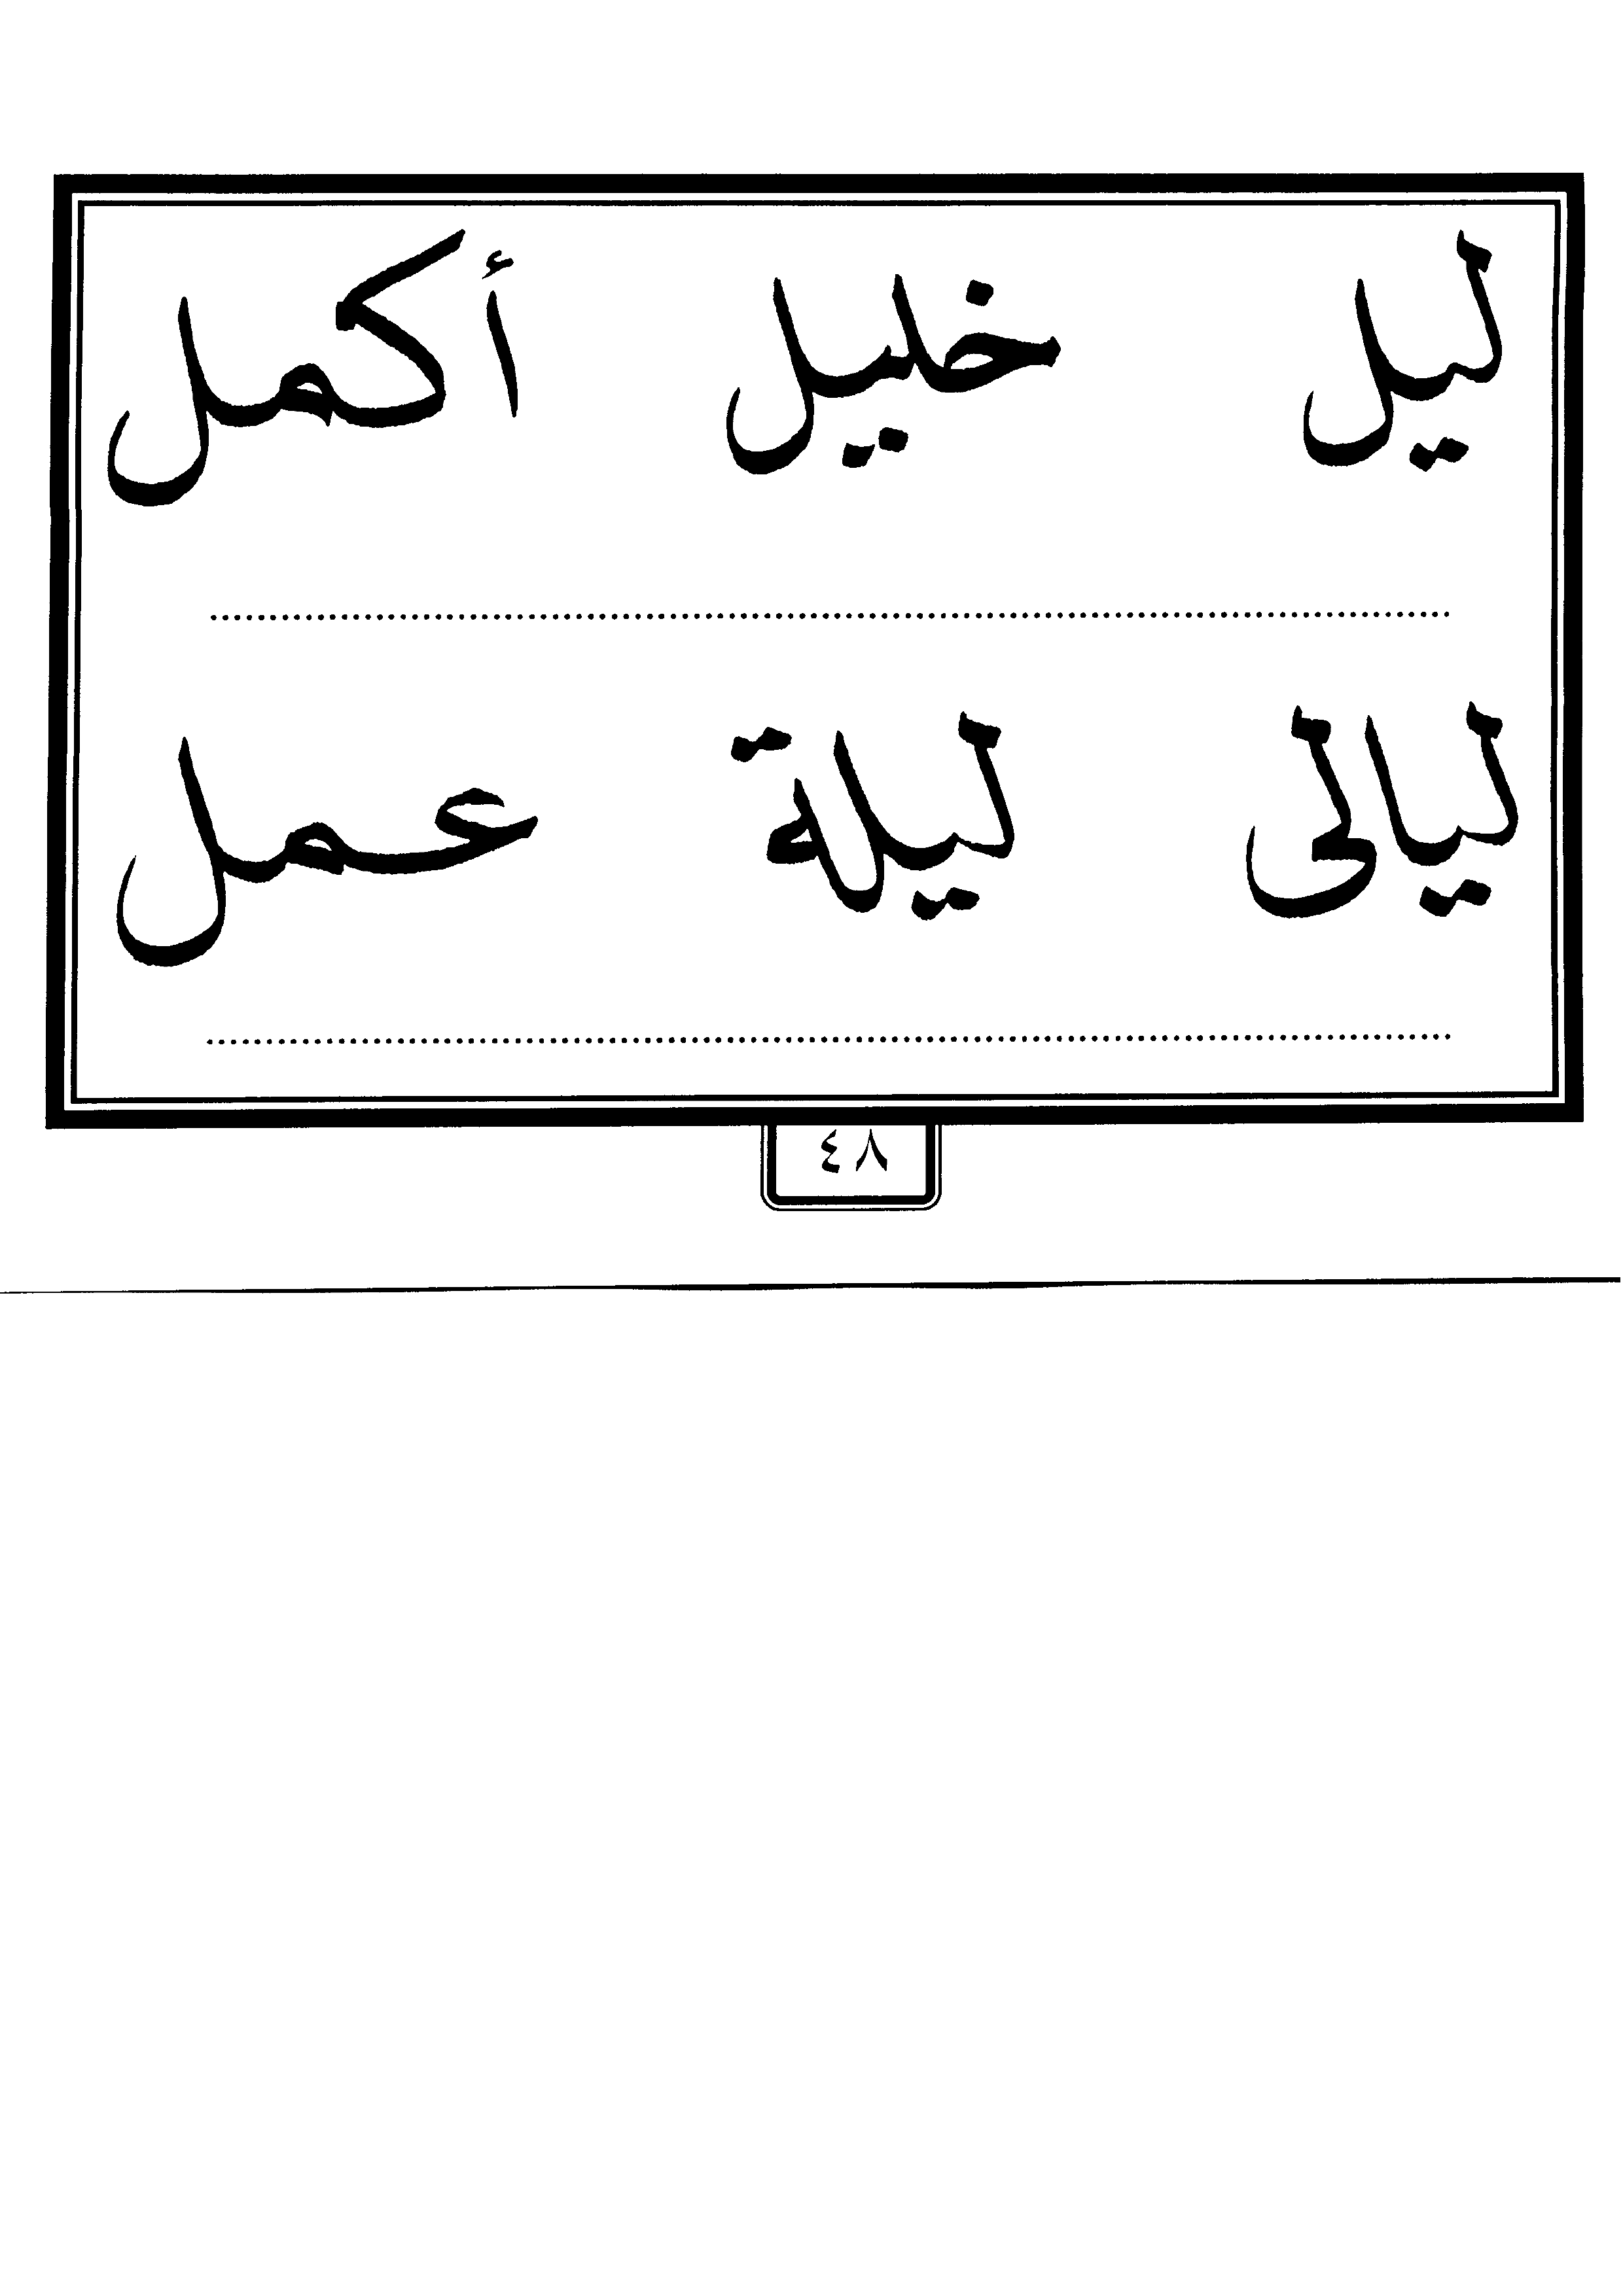 ليل خليل أكمل
ليالى ليلة عمل
٤٨